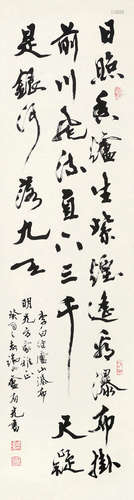 日照香爐生紫煙遙看瀑布掛
前川飛流直下三千尺疑
是銀河落九天
李白詩廬山瀑布